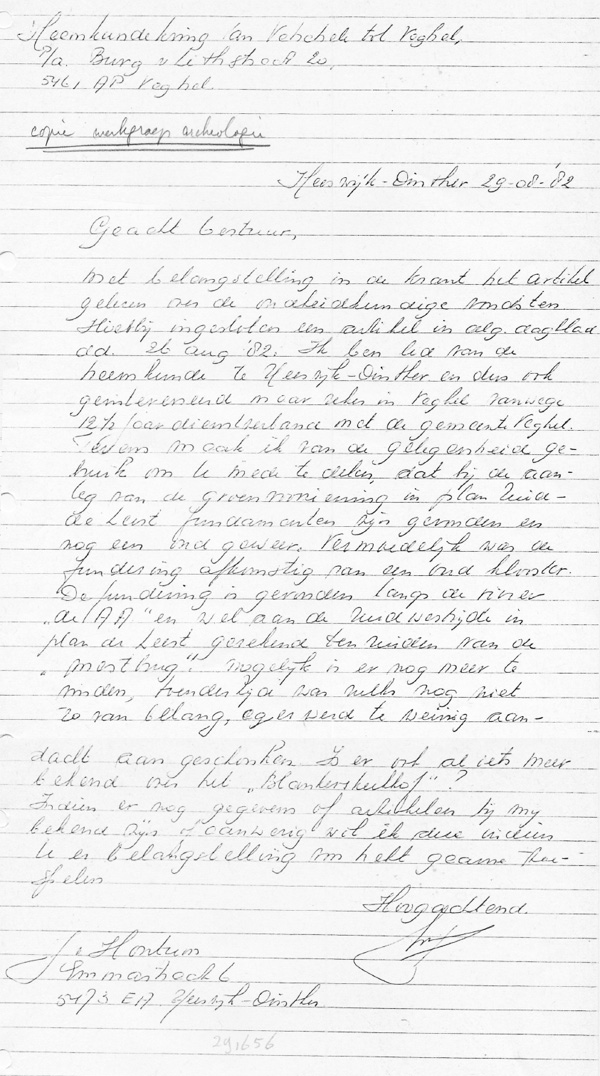 Heemkundekring van Vehchele tot Veghel,
P/a. Burg v Lithstraat 20,
5461 AP Veghel
copie werkgroep archeologie
Heeswijk-Dinther 29-08-'82
Geacht bestuur,
Met belangstelling in de krant het artikel
gelezen over de oudheidkundige vondsten
Hierbij ingesloten een artikel in alg. dagblad
dd. 26 aug '82. Ik ben lid van de
heemkunde te Heeswijk-Dinther en dus ook
geinteresseerd maar zeker in Veghel vanwege
12½ jaar dienstverband met de gemeente Veghel.
Tevens maak ik van de gelegenheid ge-
bruik om U mede te delen, dat bij de aan-
leg van de groenvoorziening in plan Zuid-
de Leest fundamenten zijn gevonden en
nog een oud geweer. Vermoedelijk was de
fundering afkomstig van een oud klooster.
De fundering is gevonden langs de rivier
„de AA" en wel aan de Zuidwestzijde in
plan de Leest gerekend ten zuiden van de
„mestbrug". Mogelijk is er nog meer te
vinden, toendertijd was zulks nog niet
zo van belang, er werd te weinig aan-
dacht aan geschonken Is er ook al iets meer
bekend over het „Blankerskullhof"?
Indien er nog gegevens of artikelen bij mij
bekend zijn of aanwezig wil ik deze indien
U er belangstelling voor hebt gaarne toe-
spelen
Hoogachtend.
Hontum
Emmastraat 6
5473 EA Heeswijk-Dinther
29,656